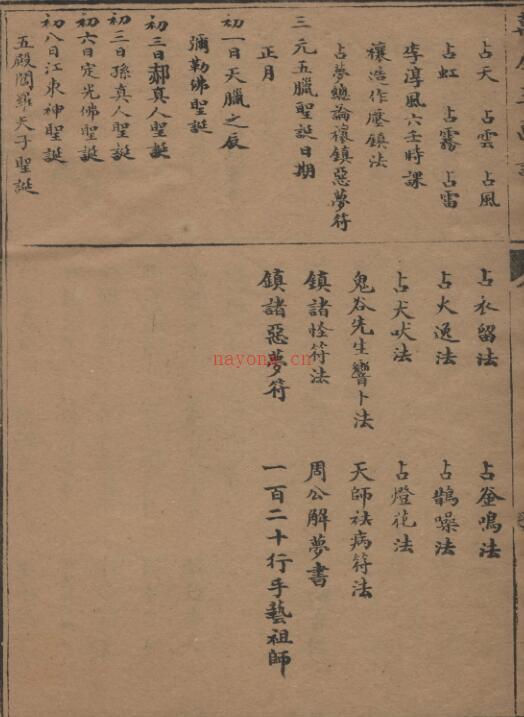 占天　占雲　占風
占虹　占霧　占雷
李淳風六壬時課
禳造作魘鎮法
占夢總論禳鎮惡夢符
三元五臘聖誕日期
正月
初一日天臘之辰
彌勒佛聖誕
初三日郝真人聖誕
初三日孫真人聖誕
初六日定光佛聖誕
初八日江東神聖誕
五殿閻羅天子聖誕
占衣留法　占釜鳴法
占火逸法　占鵲噪法
占犬吠法　占燈花法
鬼谷先生響卜法　天師祛病符法
鎮諸怪符法　周公解夢書
鎮諸惡夢符　一百二十行手藝祖師
nayong.cn